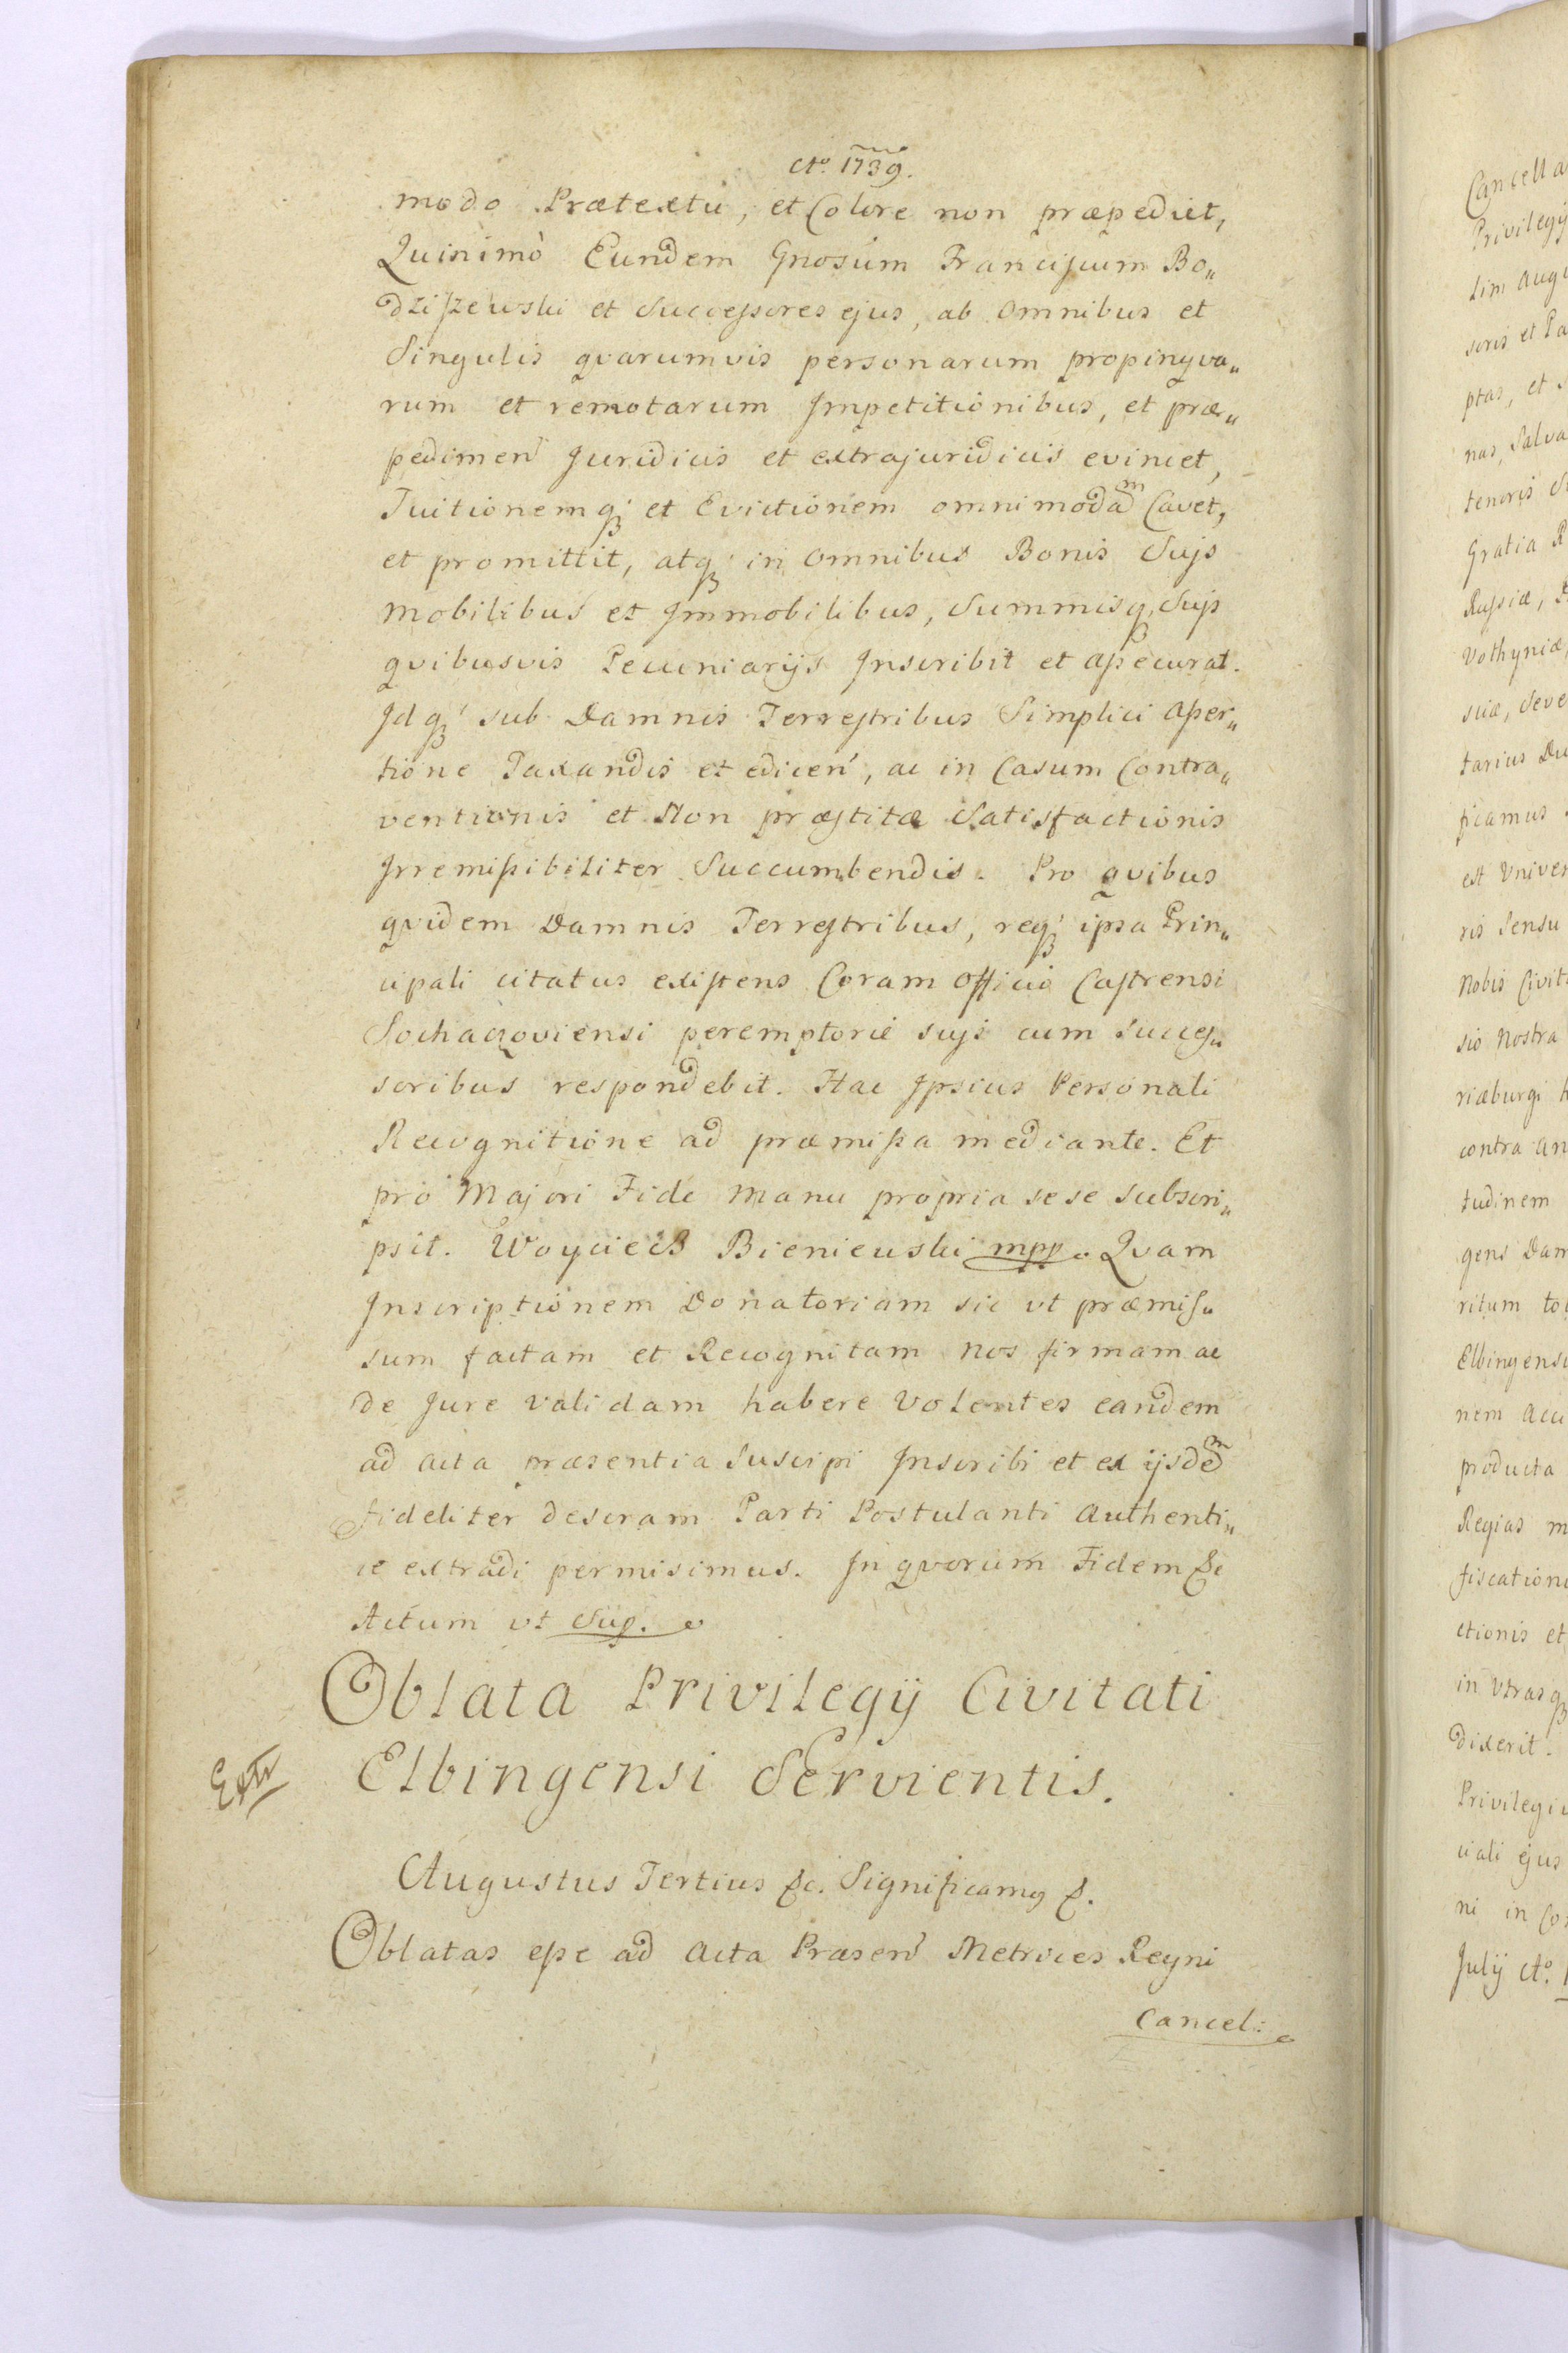 Aº 1739.
modo Prætextu, et Colore non præpediet,
Quinimò Eundem Gnosum Franciscum Bo„
dziszewski et Successores ejus, ab omnibus et
Singulis qvarumvis personarum propinqva„
rum et remotarum Impetitionibus, et præ„
pedimen Juridicis et extrajuridicis evincet,
Tuitionemq; et Evictionem omnimodam Cavet,
et promittit, atq; in omnibus Bonis Suis
Mobilibus et Immobilibus, Summisq; Suis
qvibusvis Pecuniarijs Inscribit et assecurat.
Idq; sub Damnis Terrestribus Simplici asser„
tione Taxandis et edicen, ac in Casum Contra„
ventionis et Non præstitæ Satisfactionis
Irremissibiliter Succumbendis. Pro qvibus
qvidem Damnis Terrestribus, req; ipsa Prin„
cipali citatus existens Coram Officio Castrensi
Sochaczoviensi peremptorie suis cum Succes„
soribus respondebit. Hac Ipsius Personali
Recognitione ad præmissa mediante. Et
pro Majori Fide Manu propria sese subscri„
psit. Woyciech Bieniewski mpp. Qvam
Inscriptionem Donatoriam sic vt præmis„
sum factam et Recognitam Nos firmam ac
de Jure validam habere Volentes eandem
ad Acta præsentia Suscipi Inscribi et ex ijsdem
fideliter descram Parti Postulanti Authenti„
ce extradi permisimus. In qvorum Fidem &c
Actum vt Sup.
Oblata Privilegij Civitati
Extr Elbingensi Servientis.
Augustus Tertius &c. Significamus &.
Oblatas esse ad Acta Præsen Metrices Regni
Cancel:
Cancella
Privilegij
tim Augu
soris et Pa
ptas, et S
nas, Salva
tenoris S
Gratia R
Russiæ, P
Volhyniæ,
sciæ, Seve
tarius Du
ficamus
est Univer
ris Sensu
Nobis Civit
sio Nostra
riæburgi H
contra an
tudinem
gens Dam
ritum to
Elbingensi
nem Acci
producta
Regias m
fiscationi
ctionis et
in Vtrasq;
dixerit.
Privilegi
ciali ejus
ni in Co
Julij Aº. 1